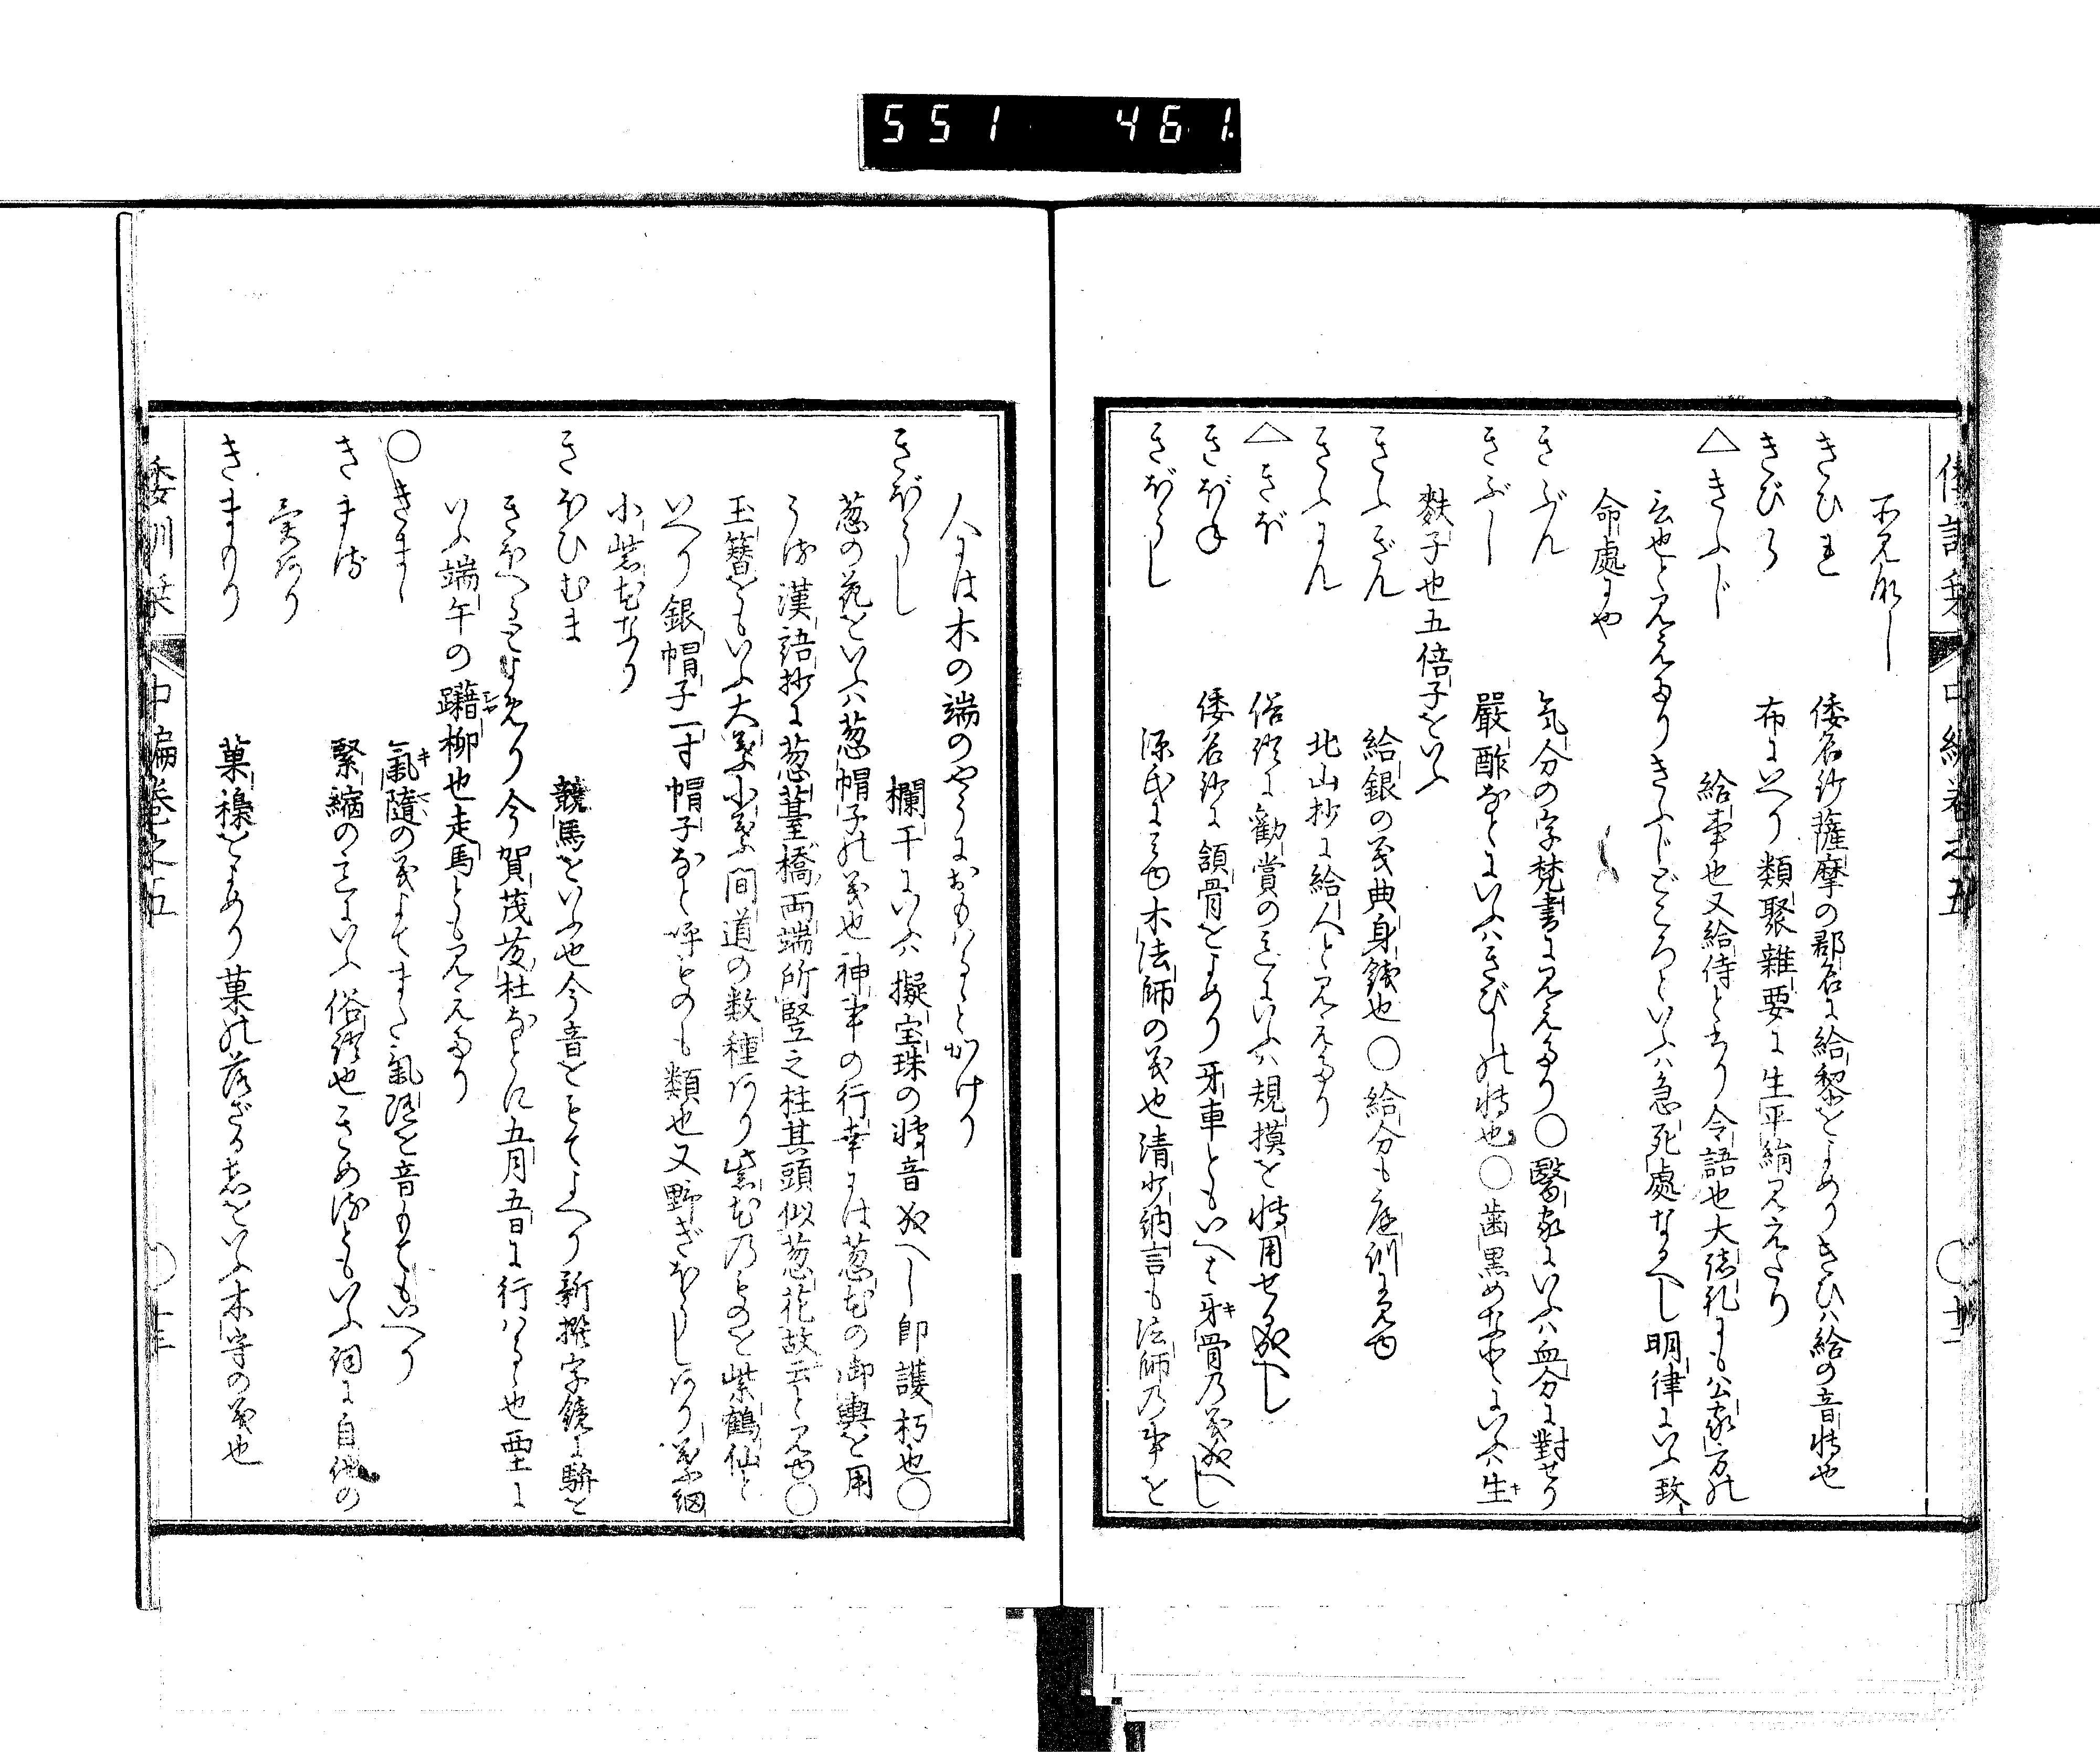 551 461
倭訓栞 中編巻之五
不見放し
きひれ 倭名抄薩摩の郡名に給黎をよめりきひハ給の音転也
きびら 布にいへり類聚雜要に生平絹見えたり
△きふじ 給事也又給侍とかけり令語也大諸礼にも公家方の
云也と見えたりきふじどころといふハ急死處なるへし明律にいふ致
命處にや
きぶん 気分の字梵書に見えたり○醫家にいふハ血分に對せり
きぶし 嚴酢なとにいふハきびしの転也○歯黒めなとにいふハ生
麩子也五倍子をいふ
きふぎん 給銀の義典身銭也○給分も庭訓に見ゆ
きふにん 北山抄に給人と見えたり
△きぼ 俗語に勸賞の意にいふハ規摸を転用せる成へし
きぼね 倭名抄に頷骨をよめり牙車ともいへは牙骨の義成へし
きぼうし 源氏に見ゆ木法師の義也清少納言も法師の事を
人には木の端のやうにおもハるゝとかけり
きぼうし 欄干にいふハ擬宝珠の転音成へし卽護朽也○
葱の花をいふハ葱帽子の義也神事の行幸には葱花の御輿を用
うる漢語抄に葱薹橋両端所竪之柱其頭似葱花故云と見ゆ○
玉簪をもいふ大葉小葉間道の数種あり紫花のものを紫鶴仙と
いへり銀帽子一寸帽子なと呼ものも類也又野ぎぼうしあり葉細
小紫花なり
きほひむま 競馬をいふ也今音をもてよへり新撰字鏡に騈を
きほへるとよめり今賀茂及社なとに五月五日に行ハるゝ也西土に
いふ端午の躤柳也走馬とも見えたり
○きまゝ 氣隨の義よてまゝ氣随を音もてもいへり
きまる 緊縮の意にいふ俗語也きめるともいふ詞に自他の
異あり
きまもり 菓褓をよめり菓の落ざる者をいふ木守の義也
倭訓栞 中編巻之五